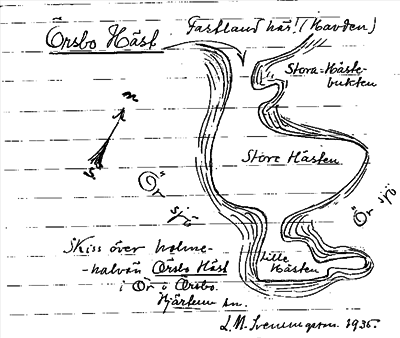 Örsbo Häst
Fastland här! (Kavden)
Stora-Häste-
bukten
N
S
Store Hästen
Ör
sjö
Ör sjö
Skiss över holme-
-halvön Örsbo Häst
i Ör ö Örsbo.
Hjärtum sn.
Lille
Hästen
1935.